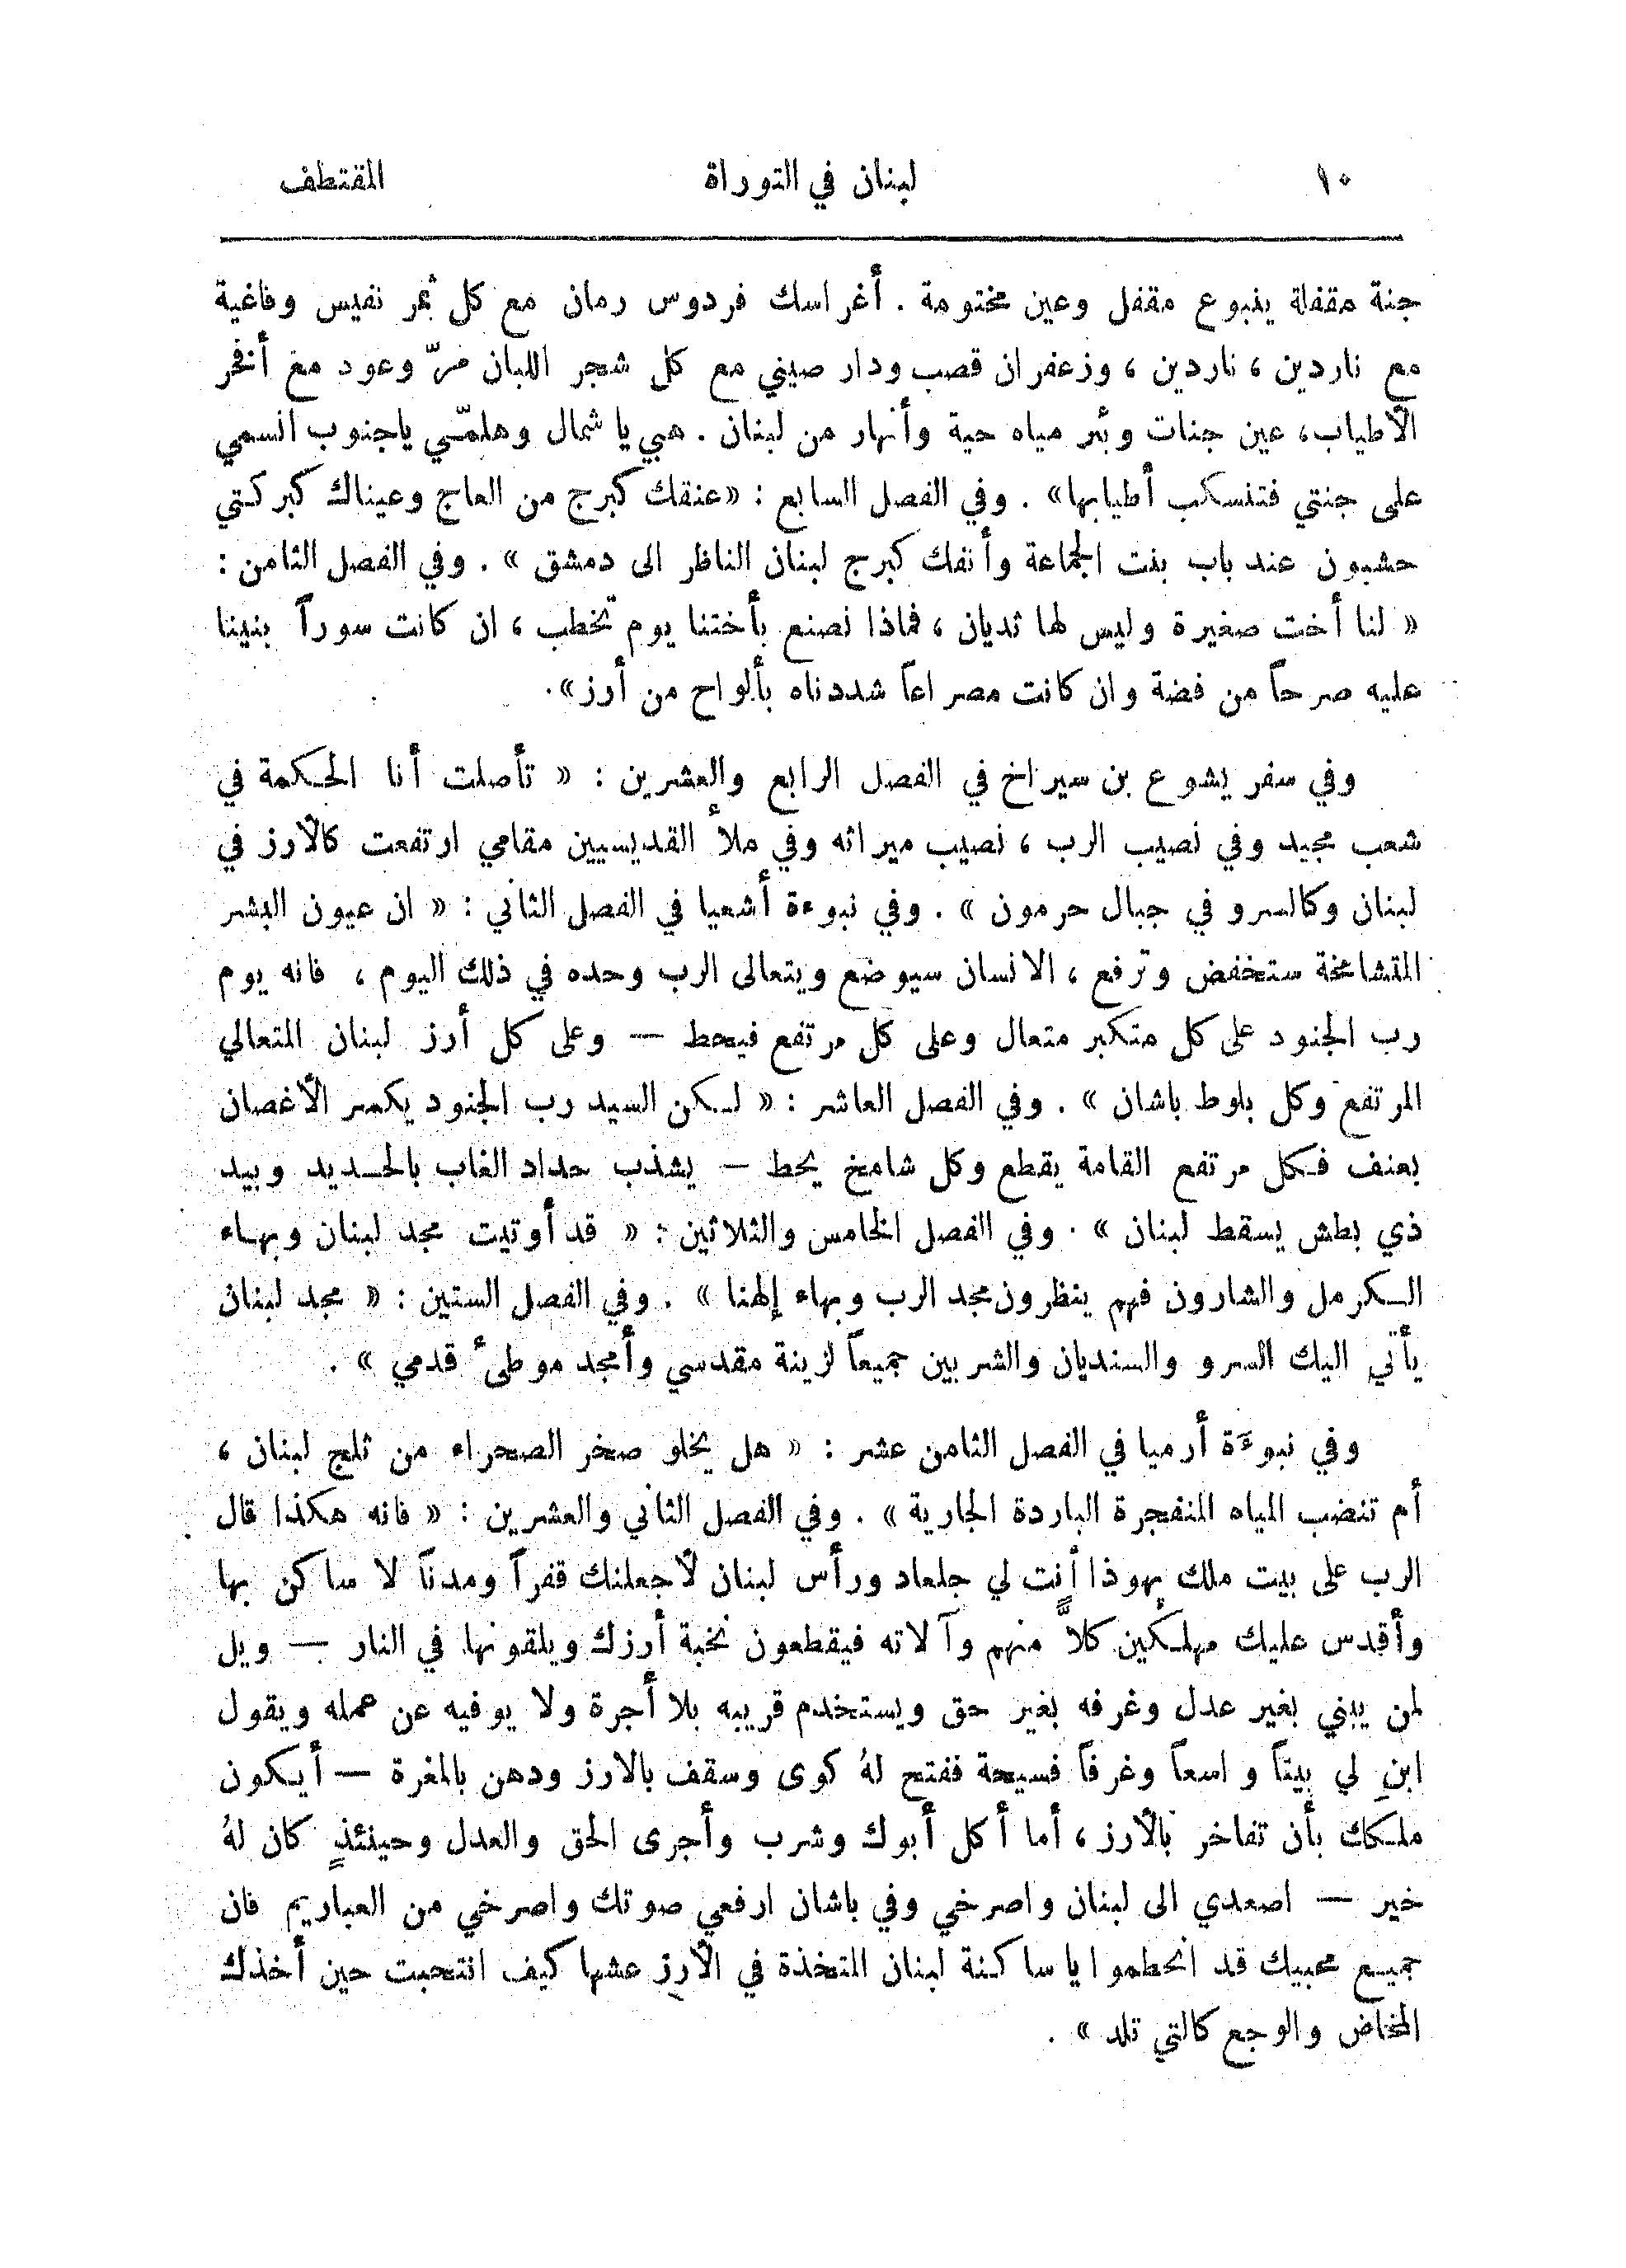 ١٠ لبنان في التوراة المقتطف
جنة مقفلة ينبوع مقفل وعين مختومة . أغراسك فردوس رمان مع كل ثمر نفيس وفاغية
مع ناردين ، ناردين ، وزعفران قصب ودار صيني مع كل شجر اللبان مرّ وعود مع أفخر
الأطياب، عين جنات وبئر مياه حية وأنهار من لبنان . هبي يا شمال وهلمّي ياجنوب انسمي
على جنتي فتنسكب أطيابها» . وفي الفصل السابع : «عنقك كبرج من العاج وعيناك كبركتي
حشبون عند باب بنت الجماعة وأنفك كبرج لبنان الناظر الى دمشق » . وفي الفصل الثامن :
« لنا أخت صغيرة وليس لها ثديان ، فماذا نصنع بأختنا يوم تُخطب ، ان كانت سوراً بنينا
عليه صرحاً من فضة وان كانت مصراعاً شددناه بألواح من أرز».
وفي سفر يشوع بن سيراخ في الفصل الرابع والعشرين : « تأصلت أنا الحكمة في
شعب مجيد وفي نصيب الرب ، نصيب ميراثه وفي ملأ القديسيين مقامي ارتفعت كالأرز في
لبنان وكالسرو في جبال حرمون » . وفي نبوءة أشعيا في الفصل الثاني : « ان عيون البشر
المتشامخة ستخفض وترفع ، الانسان سيوضع ويتعالى الرب وحده في ذلك اليوم ، فانه يوم
رب الجنود على كل متكبر متعال وعلى كل مرتفع فيحط — وعلى كل أرز لبنان المتعالي
المرتفع وكل بلوط باشان » . وفي الفصل العاشر : « لكن السيد رب الجنود يكسر الأغصان
بعنف فكل مرتفع القامة يقطع وكل شامخ يحط — يشذب حداد الغاب بالحديد وبيد
ذي بطش يسقط لبنان » . وفي الفصل الخامس والثلاثين : « قد أوتيت مجد لبنان وبهاء
الكرمل والشارون فهم ينظرون مجد الرب وبهاء إلهنا » . وفي الفصل الستين : « مجد لبنان
يأتي اليك السرو والسنديان والشربين جميعاً لزينة مقدسي وأمجد موطئ قدمي » .
وفي نبوءَة أرميا في الفصل الثامن عشر : « هل يخلو صخر الصحراء من ثلج لبنان ،
أم تنضب المياه المنفجرة الباردة الجارية » . وفي الفصل الثاني والعشرين : « فانه هكذا قال
الرب على بيت ملك يهوذا أنت لي جلعاد ورأس لبنان لأجعلنك قفراً ومدناً لا ساكن بها
وأقدس عليك مهلكين كلاًّ منهم وآلاته فيقطعون نخبة أرزك ويلقونها في النار — ويل
لمن يبني بغير عدل وغرفه بغير حق ويستخدم قريبه بلا أجرة ولا يوفيه عن عمله ويقول
ابنِ لي بيتاً واسعاً وغرفاً فسيحة ففتح لهُ كوى وسقف بالارز ودهن بالمغرة — أيكون
ملكك بأن تفاخر بالأرز ، أما أكل أبوك وشرب وأجرى الحق والعدل وحينئذٍ كان لهُ
خير — اصعدي الى لبنان واصرخي وفي باشان ارفعي صوتك واصرخي من العباريم فان
جميع محبيك قد انحطموا ياساكنة لبنان المتخذة في الأرز عشها كيف انتحبت حين أخذك
المخاض والوجع كالتي تلد » .